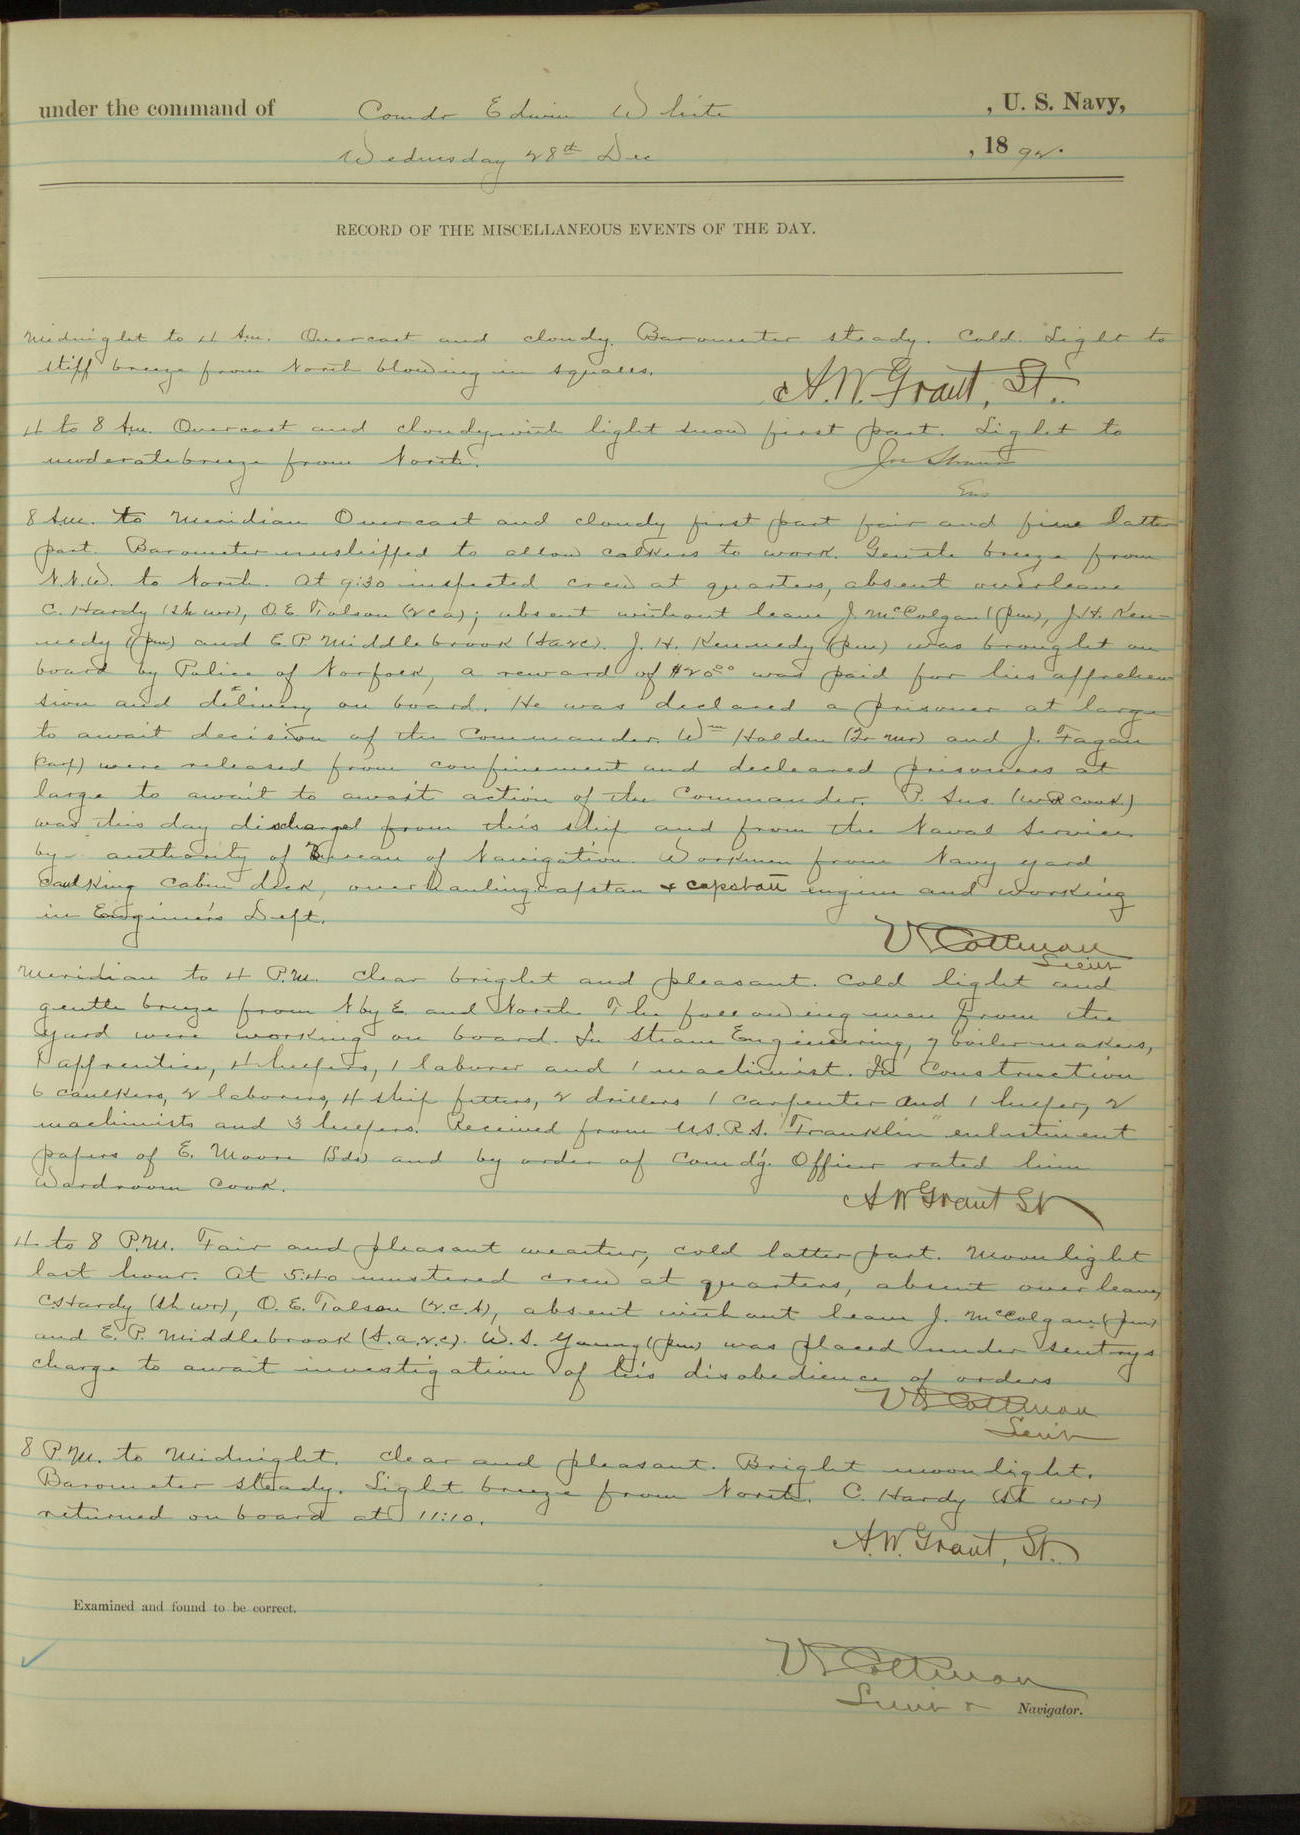 under the command of Comdr Edwin White , U. S. Navy,
Wednesday 28th Dec , 1892.
RECORD OF THE MISCELLANEOUS EVENTS OF THE DAY.
Midnight to 4 A.m. Overcast and cloudy. Barometer steady. Cold. Light to
stiff breeze from North blowing in squalls.
A. W. Grant, Lt.
4 to 8 A.m. Overcast and cloudy with light snow first part. Light to
moderate breeze from North.
Jos Strauss
Ens
8 A.m. to Meridian Overcast and cloudy first part fair and fine latter
part. Barometer unshipped to allow calkers to work. Gentle breeze from
N.N.W. to North. At 9:30 inspected crew at quarters, absent overleave
C. Hardy (sh wr), O.E. Tolson (2 c a); absent without leave J. McColgan (pm), J.H. Ken-
nedy (pm) and E P Middlebrook (sa2c). J. H. Kennedy (pm) was brought on
board by Police of Norfolk, a reward of $20.00 was paid for his apprehen
sion and delivery on board. He was declared a prisoner at large
to await decision of the Commander. Wm Holden (Tr mr) and J. Fagan
(Corp) were released from confinement and decleared prisoners at
large to await to await action of the Commander. P. Sus. (WR cook)
was this day discharged from this ship and from the Naval Service
by authority of Bureau of Navigation. Workmen from Navy yard
caulking cabin deck, overhauling capstan & capstan engine and working
in Engineers Dept.
VS Cottman
Lieut
Meridian to 4 P.M. Clear bright and pleasant. Cold light and
gentle breeze from N by E and North. The following men from the
yard were working on board. In Steam Engineering, 7 boilermakers,
1 apprentice, 4 helpers, 1 laborer and 1 machinist. In Construction
6 caulkers, 2 laborers, 4 ship fitters, 2 drillers 1 carpenter and 1 helper, 2
machinists and 3 helpers. Received from U.S.R.S. "Franklin" enlistment
papers of E. Moore (Lds) and by order of Comd'g. Officer rated him
Wardroom Cook.
A W Grant Lt
4 to 8 P.M. Fair and pleasant weather, cold latter part. Moonlight
last hour. At 5:40 mustered crew at quarters, absent over leave,
C. Hardy (sh wr), O. E. Tolson (2.c.A), absent without leave J. McColgan (pm)
and E. P. Middlebrook (S.a.2.c). W. S. Young (pm) was placed under sentrys
charge to await investigation of his disobedience of orders
VS Cottman
Lieut
8 P.M. to Midnight. Clear and pleasant. Bright moonlight.
Barometer steady. Light breeze from North. C. Hardy (sh wr)
returned on board at 11:10.
A. W. Grant, Lt.
Examined and found to be correct.
VS Cottman
Lieut & Navigator.